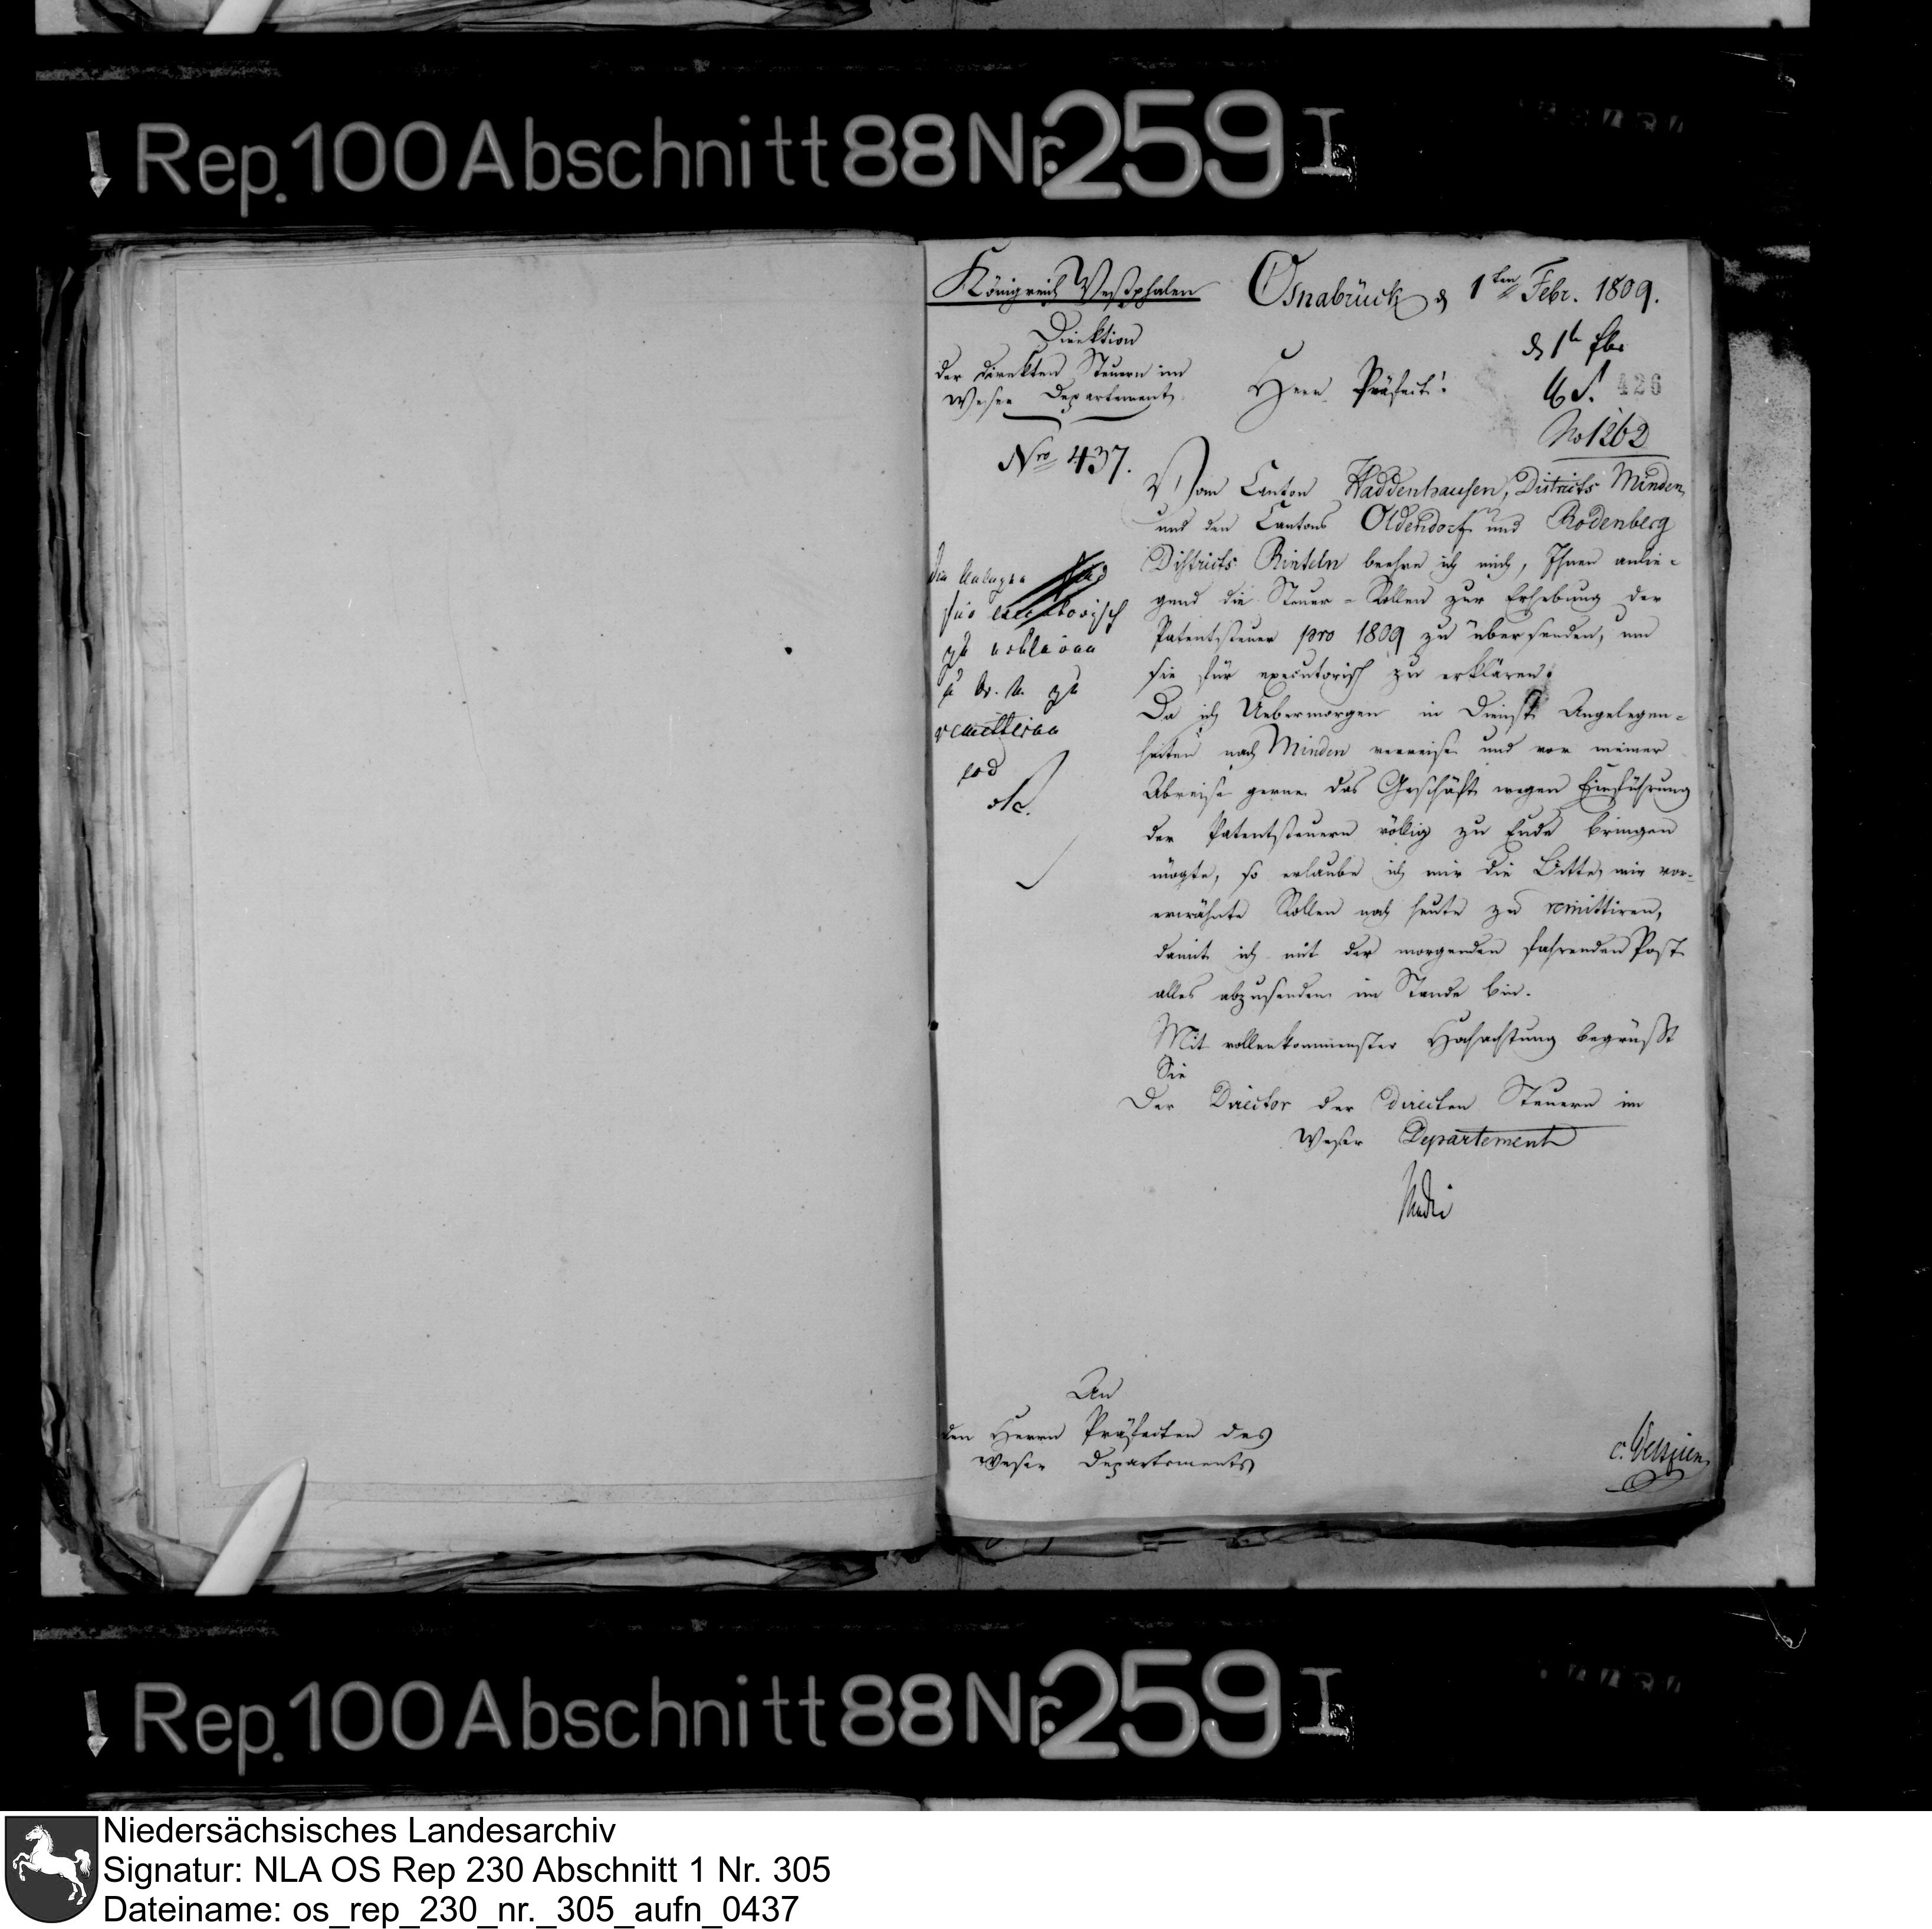 Rep. 100 Abschnitt 88 Nr. 259 I
Königreich Westphalen
Direktion
der direkten Steuern im
Weser Departement
Nro 437.
Osnabrück d 1ten Febr. 1809.
Herr Präfect!
426
No 1262
Vom Canton Haddenhausen, Districts Minden,
und den Cantons Oldendorf und Rodenberg
Districts Rinteln beehre ich mich, Ihnen anlie-
gend die Steuer-Rollen zur Erhebung der
Patentsteuer pro 1809 zu übersenden, um
sie für executorisch zu erklären.
Da ich Uebermorgen in Dienst Angelegen-
heiten nach Minden verreise und vor meiner
Abreise gerne das Geschäft wegen Einführung
der Patentsteuern völlig zu Ende bringen
mögte, so erlaube ich mir die Bitte, mir vor-
erwähnte Rollen noch heute zu remittiren,
damit ich mit der morgenden fahrenden Post
alles abzusenden im Stande bin.
Mit vollenkommenster Hochachtung begrüßt
Sie
Der Director der directen Steuern im
Weser Departement
die Anlagen
für executorisch
zu erklären
zu
remittiren
eod
An
den Herrn Präfecten des
Weser Departements
Rep. 100 Abschnitt 88 Nr. 259 I
Niedersächsisches Landesarchiv
Signatur: NLA OS Rep 230 Abschnitt 1 Nr. 305
Dateiname: os_rep_230_nr._305_aufn_0437